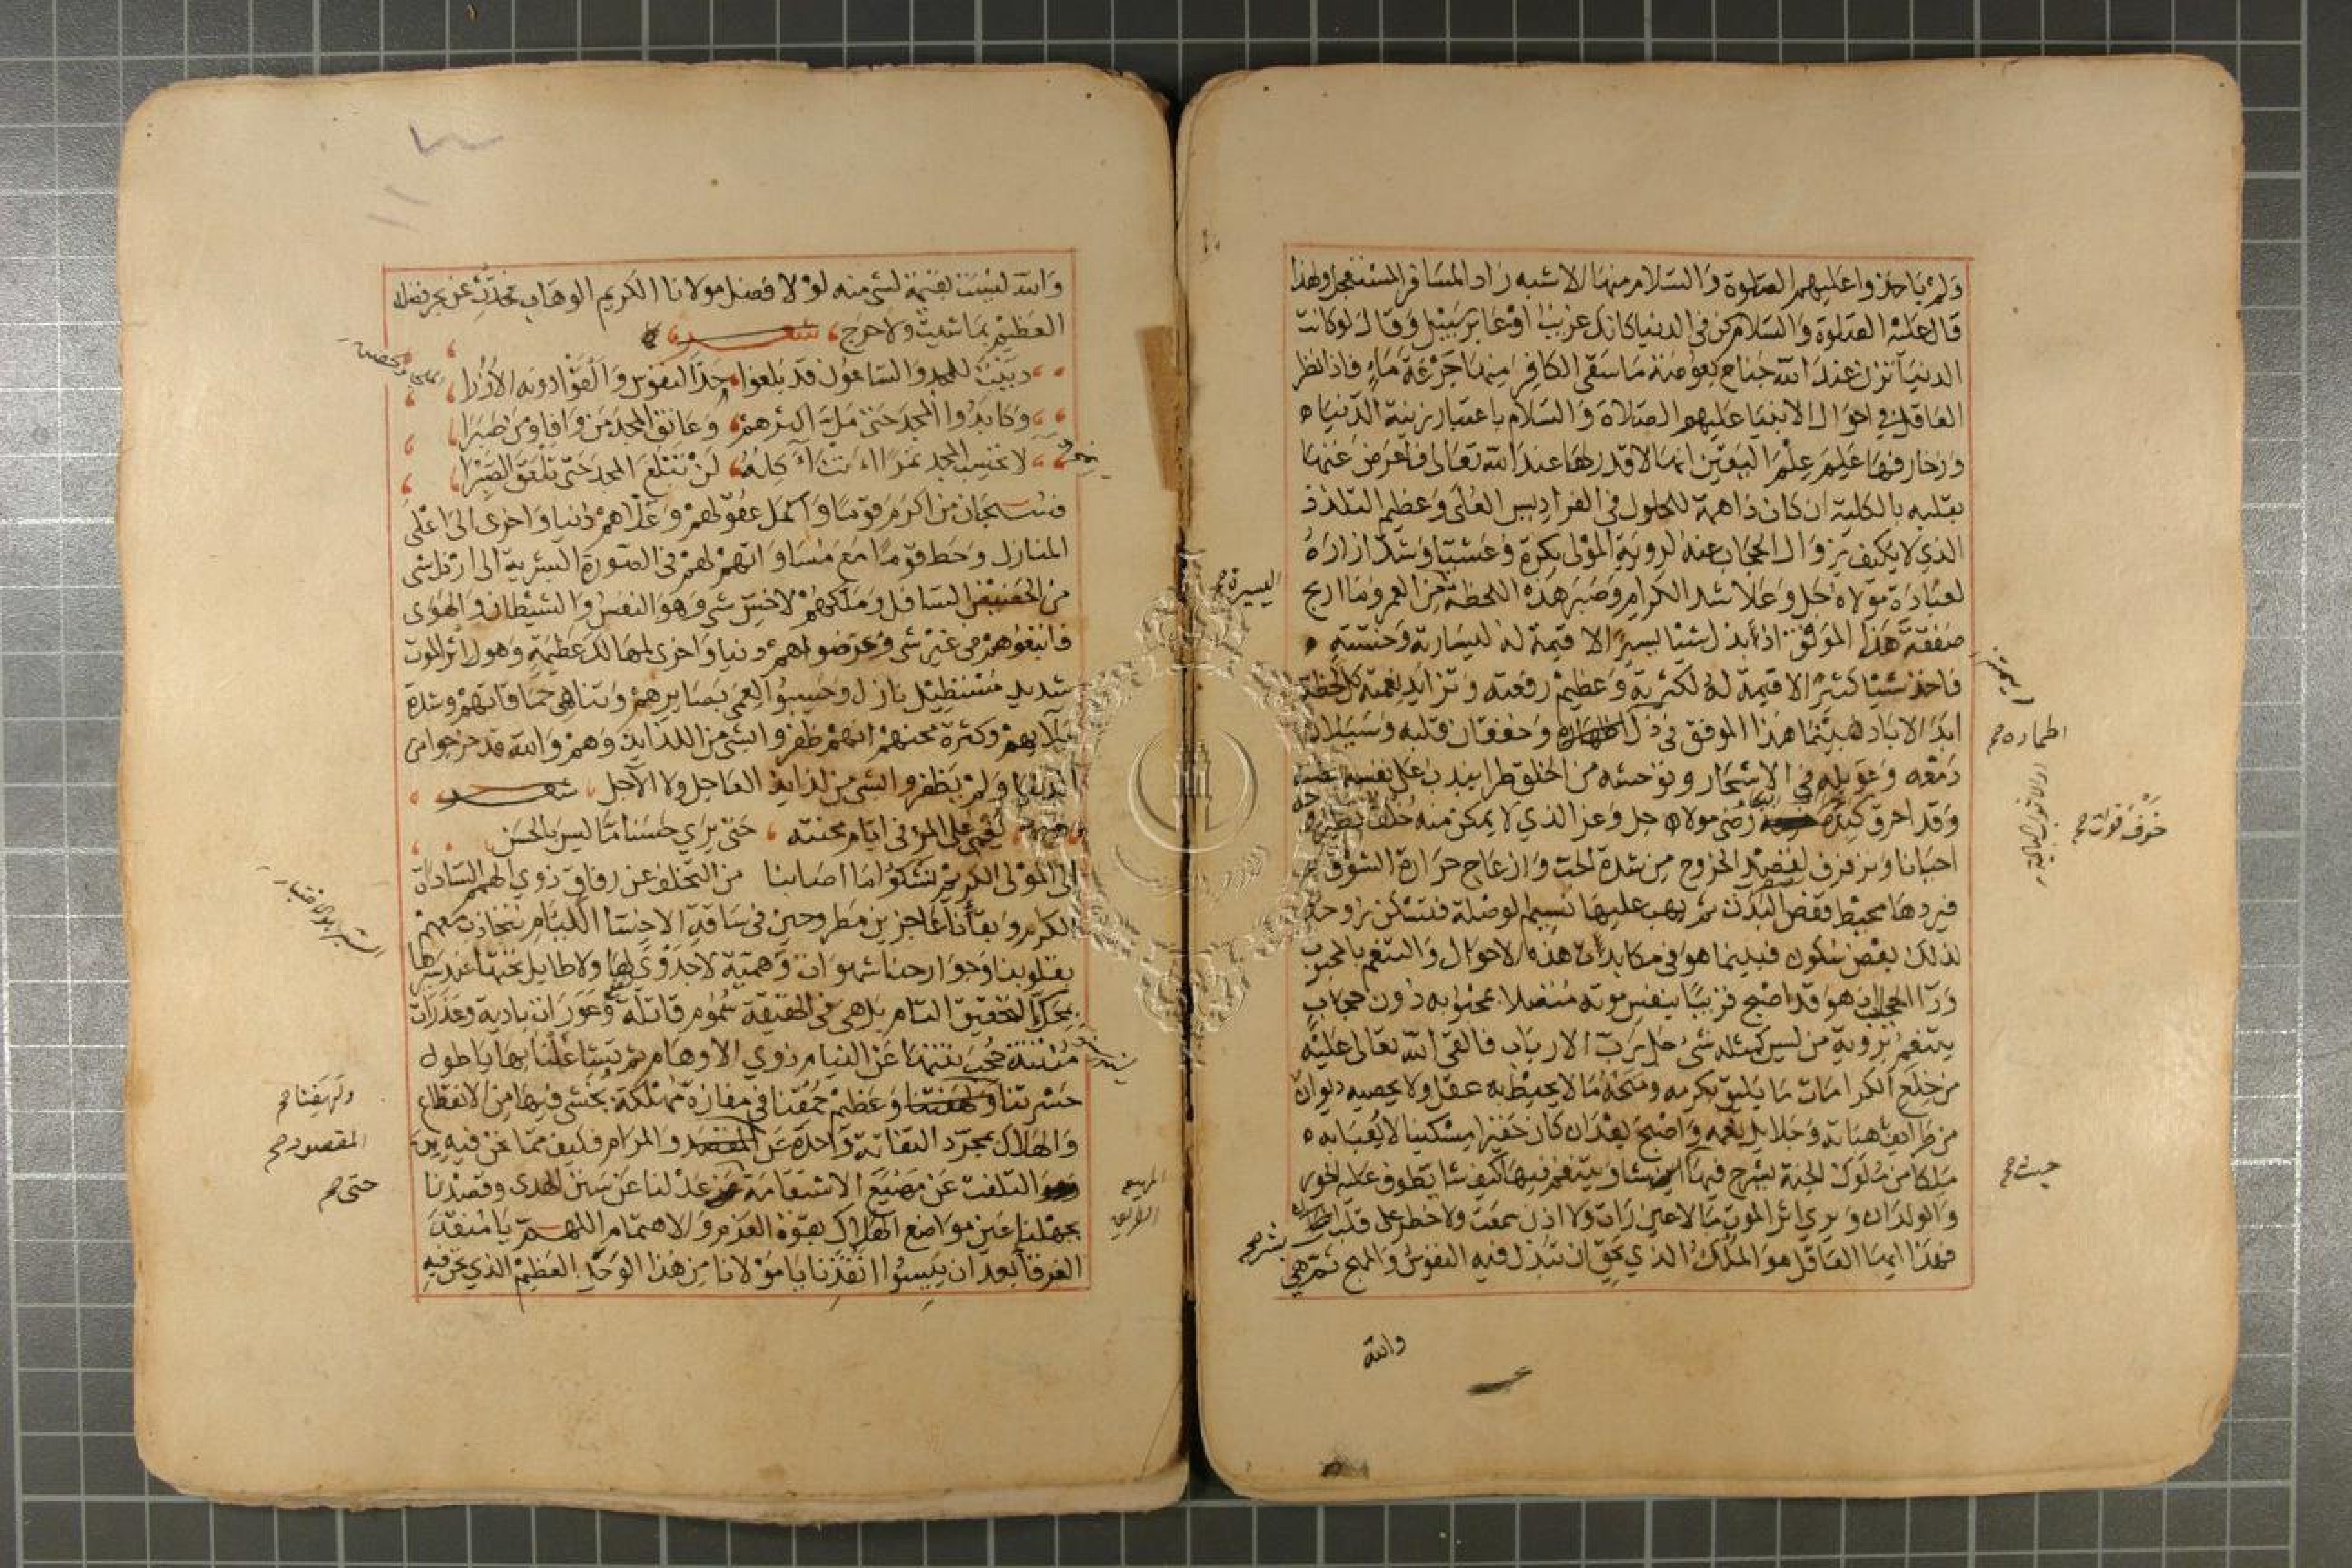 ولم ياخذوا عليهم الصلوة والسلام منها الا شبه زاد المسافر المستعجل ولهذا
قال عليه الصلوة والسلام كن في الدنيا كانك غريب او عابر سبيل وقال لو كانت
الدنيا تزن عند الله جناح بعوضة ما سقى الكافر منها جرعة ماء فاذا نظر
العاقل في احوال الانبيا عليهم الصلاة والسلام باعتبار زينة الدنياه
وزخارفها علم علم اليقين انها لا قدر لها عند الله تعالى فاعرض عنها
بقلبه بالكلية ان كان ذا همة للحلول في الفراديس العلى وعظيم التلذذ
الذي لا يكيف بزوال الحجاب عنه لروية المولى بكرة وعشيا وشد ازاره
لعبادة مولاه جل وعلا شد الكرام وصبر هذه اللحظة من العمر وما اربح
اليسيرة صح
صفقة هذا الموفق اذا بذل شيئا يسيرا لا قيمة له ليسارته وخسته
فاخذ شيئا كثيرا لا قيمة له لكثرته وعظيم رفعته وتزايد نعمته كل لحظة
ابد الاباد فبينما هذا الموفق في ذل وخفقان قلبه وسيلان
اطماره صح
دمعه وعويله في الاسحار وتوحشه من الخلق طرا يندب على نفسه
وقد احرق كبده رضى مولاه جل وعز الذي لا يمكن منه خلف يطير
خوف فوات صح
احيانا ويرفرف لقصد الخروج من شدة الحب وازعاج حرارة الشوق
فيردها محيط قفص البدن ثم يهب عليها نسيم الوصلة فتسكن بروح
لذلك بعض سكون فبينما هو في مكابدات هذه الاحوال والتنعم بالمحبوب
ورا الحجاب اذ هو قد اصبح قريبا بنفس موته متصلا بمحبوبه دون حجاب
يتنعم بروية من ليس كمثله شى جل رب الارباب فالقى الله تعالى عليه
من خلع الكرامات ما يليق بكرمه ومنحه ما لا يحيط به عقل ولا يحصيه ديوان
من طرايف هباته وجلايل نعمه واصبح بعد ان كان حقيرا مسكينا لا يعبا به
ملكا من ملوك الجنة يسرح فيها اين شا ويتنعم فيها كيف شا يطوف عليه الحور
حيث صح
والولدان ويرى اثر الموت ما لا عين رات ولا اذن سمعت ولا خطر على قلب
بشر صح
فهذا ايها العاقل هو الملك الذي يحق ان تبذل فيه النفوس والمهج ثم هي
والله
والله ليست بقيمة لشى منه لولا فضل مولانا الكريم الوهاب فحدث عن بحر فضل
العظيم بما شيت ولا حرج شعر
دببت للمجد والساعون قد بلغوا جد النفوس والقوا دونه الازرا
وكابدوا المجد حتى مل اكثرهم وعانق المجد من وافى ومن صبرا
لا تحسب المجد تمرا انت آكله لن تبلغ المجد حتى تلعق الصبرا
فسبحان من اكرم قوما واكمل عقولهم وعلاهم دنيا واخرى الى اعلى
المنازل وحط قوما مع مساواتهم لهم في الصورة البشرية الى ارذل شى
من الحضيض السافل وملكهم لاخس شى وهو النفس والشيطان والهوى
فاتبعوهم في غير شى وعرضوا لهم دنيا واخرى لمهالك عظيمة وهول اثر الموت
شديد مستطيل نازل وحسبوا لعمى بصايرهم وتناهي حماقاتهم وشدة
بلايهم وكثرة محنهم انهم ظفروا بشى من اللذايذ وهم والله قد خرجوا من
الدنيا ولم يظفروا بشى من لذايذ العاجل ولا الآجل شعر
يقضى على المرء في ايام محنته حتى يرى حسنا ما ليس بالحسن
الى المولى الكريم نشكوا ما اصابنا من التخلف عن رفاق ذوي الهمم السادات
الكرام وبقائنا عاجزين مطروحين في ساقة الاخسا الليام نتجاذب معهم
بقلوبنا وجوارحنا شهوات وهمية لا جدوى لها ولا طايل تحتها عند سبرها
بمحك التحقيق التام بل هي في الحقيقة سموم قاتلة وعورات بادية وعذرات
منتنة حجب نتنها عن النيام ذوي الاوهام ثم تشاغلنا بها يا طول
حسرتنا وعظيم حمقنا في مفازة مهلكة يخشى فيها من الانقطاع
ولهفنا صح
والهلاك بمجرد التفاتة واحدة عن والمرام فكيف بما نحن فيه من
المقصود صح
التلفت عن مهيع الاستقامة عدلنا عن سنن الهدى وقصدنا
حتى صح
بجهلنا عين مواضع الهلاك بقوة العزم والاهتمام اللهم يا منقذ
الغرقا بعد ان ييسوا انقذنا يا مولانا من هذا الوحل العظيم الذي نحن فيه